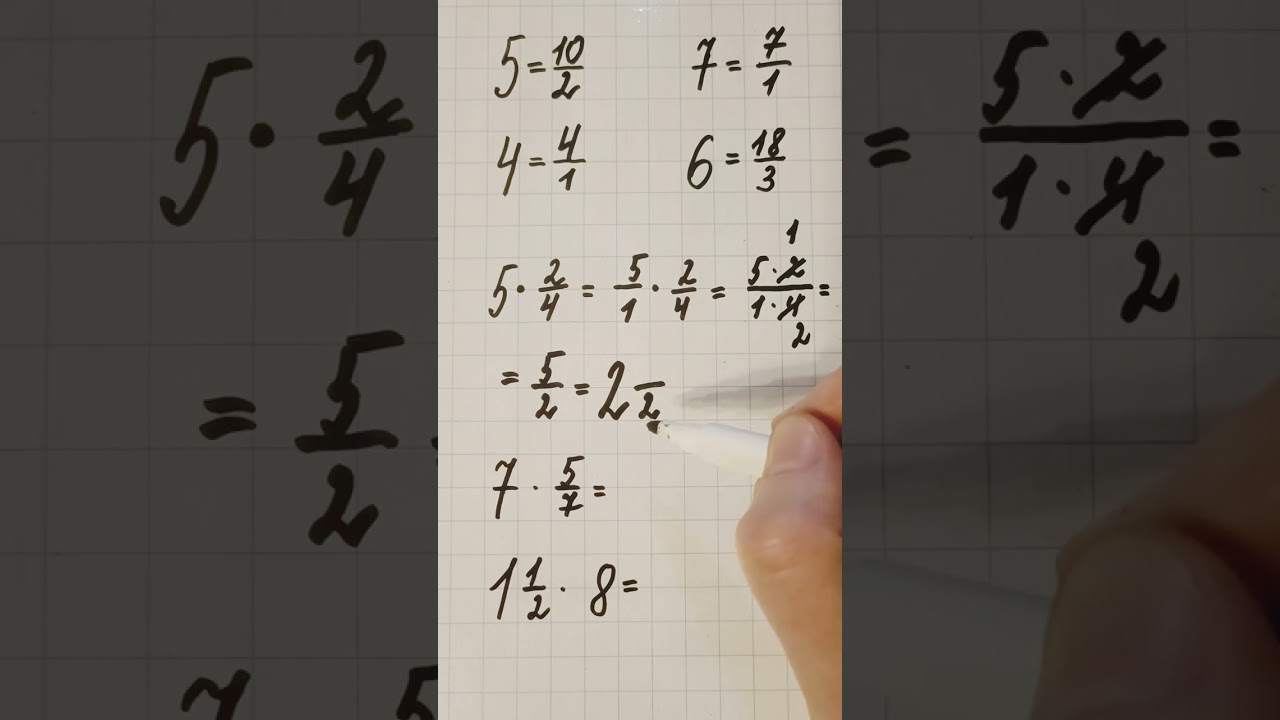 5 = 10/2 7 = 7/1
4 = 4/1 6 = 18/3
1
5 · 2/4 = 5/1 · 2/4 = 5 · 2/1 · 4 =
2
= 5/2 = 2 /2
7 · 5/7 =
1 1/2 · 8 =